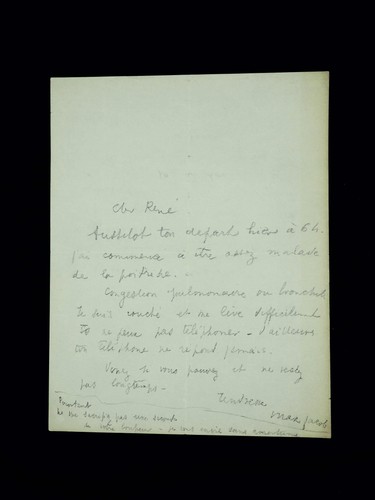 cher René
Aussitôt ton départ hier à 6 h.
j'ai commencé à être assez malade
de la poitrine. ..
Congestion pulmonaire ou bronchite
Je suis couché et me lève difficilement
Je ne peux pas téléphoner - d'ailleurs
ton téléphone ne répond jamais.
Venez si vous pouvez et ne restez
pas longtemps -
Tendresse
Max Jacob
Pourtant
ne pas une seconde
votre bonheur - je vous sans